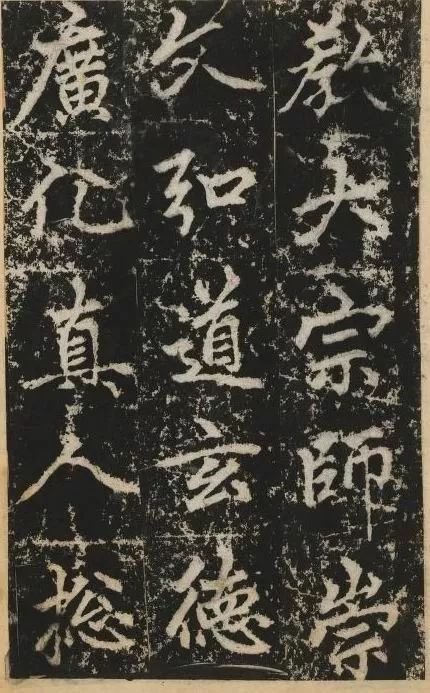 教大宗師崇
文弘道玄德
廣化真人摠